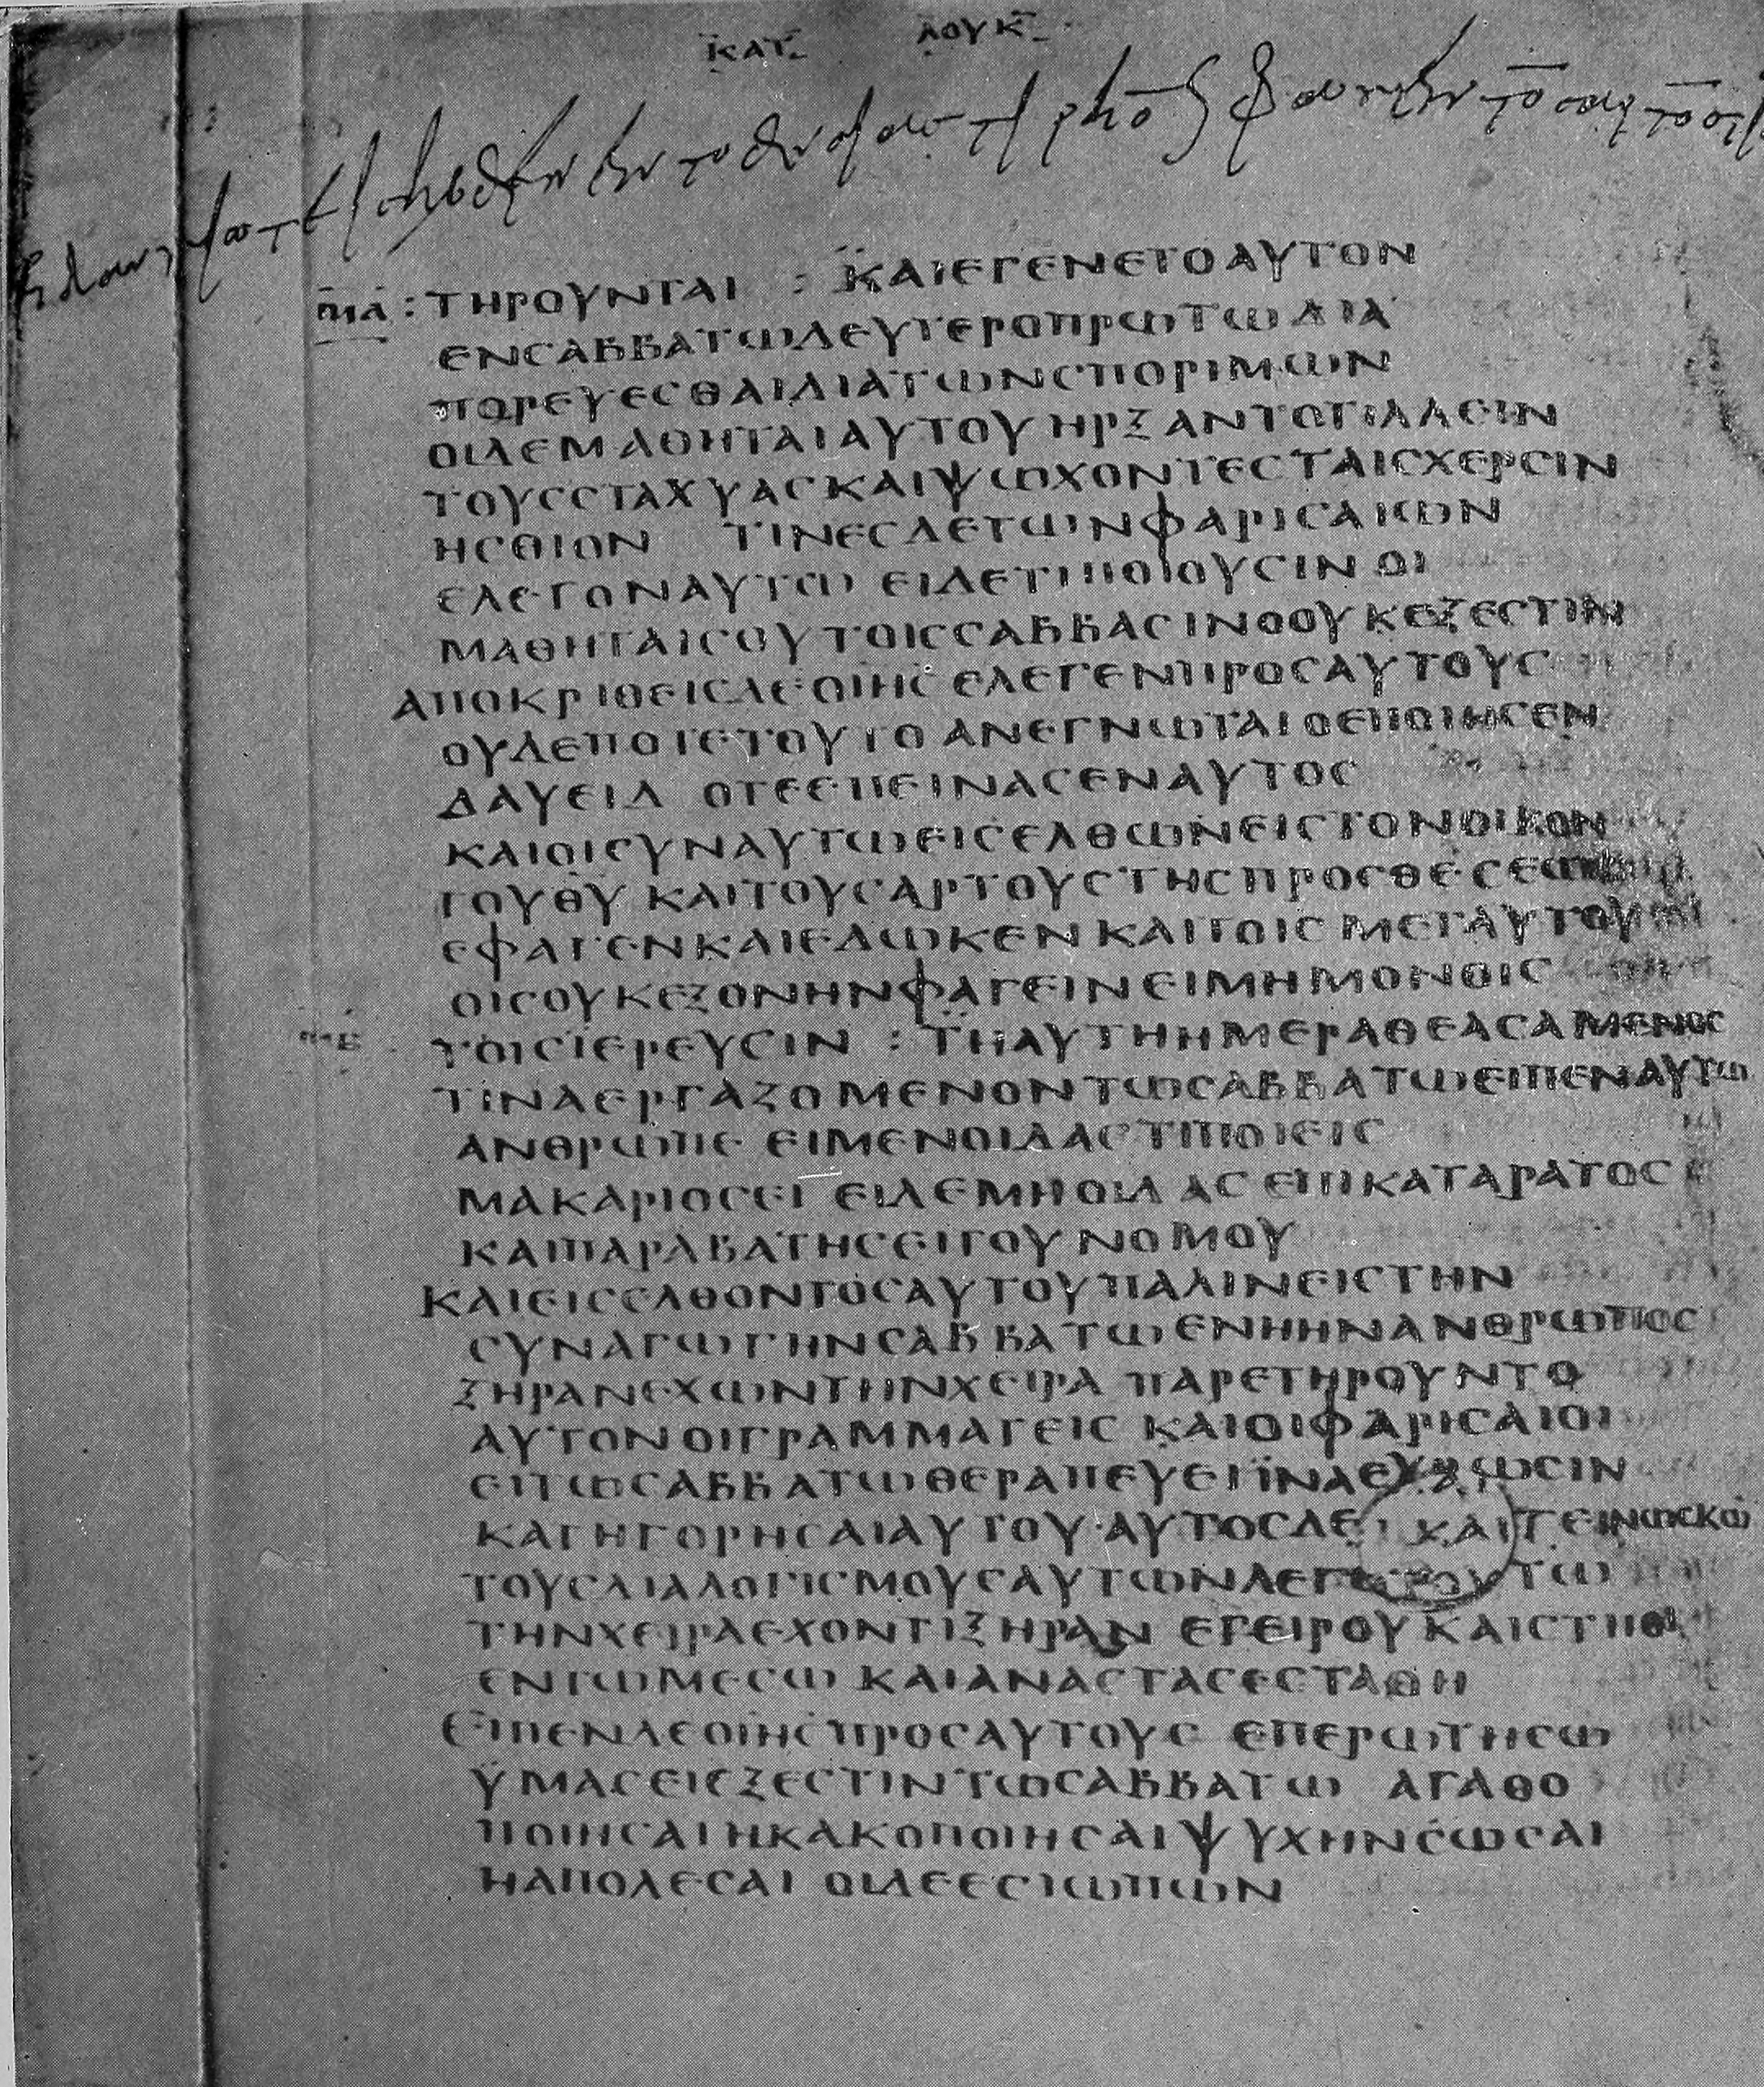 ΚΑΤ ΛΟΥΚ
ΜΑ : ΤΗΡΟΥΝΤΑΙ : ΚΑΙΕΓΕΝΕΤΟΑΥΤΟΝ
ΕΝСΑΒΒΑΤΩΔΕΥΤΕΡΟΠΡΩΤΩΔΙΑ
ΠΟΡΕΥΕСΘΑΙΔΙΑΤΩΝСΠΟΡΙΜΩΝ
ΟΙΔΕΜΑΘΗΤΑΙΑΥΤΟΥΗΡΞΑΝΤΟΤΙΛΛΕΙΝ
ΤΟΥССΤΑΧΥΑСΚΑΙΨΩΧΟΝΤΕСΤΑΙСΧΕΡСΙΝ
ΗСΘΙΟΝ ΤΙΝΕСΔΕΤΩΝΦΑΡΙСΑΙΩΝ
ΕΛΕΓΟΝΑΥΤΩ ΕΙΔΕΤΙΠΟΙΟΥСΙΝ ΟΙ
ΜΑΘΗΤΑΙСΟΥΤΟΙССΑΒΒΑСΙΝΟΟΥΚΕΞΕСΤΙΝ
ΑΠΟΚΡΙΘΕΙСΔΕΟΙΗС ΕΛΕΓΕΝΠΡΟСΑΥΤΟΥС
ΟΥΔΕΠΟΤΕΤΟΥΤΟ ΑΝΕΓΝΩΤΑΙΟΕΠΟΙΗСΕΝ
ΔΑΥΕΙΔ ΟΤΕΕΠΕΙΝΑСΕΝΑΥΤΟС
ΚΑΙΟΙСΥΝΑΥΤΩΕΙСΕΛΘΩΝΕΙСΤΟΝΟΙΚΟΝ
ΤΟΥΘΥ ΚΑΙΤΟΥСΑΡΤΟΥСΤΗСΠΡΟСΘΕСΕΩС
ΕΦΑΓΕΝΚΑΙΕΔΩΚΕΝ ΚΑΙΤΟΙС ΜΕΤΑΥΤΟΥ
ΟΙСΟΥΚΕΞΟΝΗΝΦΑΓΕΙΝΕΙΜΗΜΟΝΟΙС
ΜΒ ΤΟΙСΙΕΡΕΥСΙΝ : ΤΗΑΥΤΗΗΜΕΡΑΘΕΑСΑΜΕΝΟС
ΤΙΝΑΕΡΓΑΖΟΜΕΝΟΝΤΩСΑΒΒΑΤΩΕΙΠΕΝΑΥΤΩ
ΑΝΘΡΩΠΕ ΕΙΜΕΝΟΙΔΑСΤΙΠΟΙΕΙС
ΜΑΚΑΡΙΟСΕΙ ΕΙΔΕΜΗΟΙΔΑС ΕΠΙΚΑΤΑΡΑΤΟС
ΚΑΙΠΑΡΑΒΑΤΗСΕΙΤΟΥΝΟΜΟΥ
ΚΑΙΕΙСΕΛΘΟΝΤΟСΑΥΤΟΥΠΑΛΙΝΕΙСΤΗΝ
СΥΝΑΓΩΓΗΝСΑΒΒΑΤΩΕΝΗΗΝΑΝΘΡΩΠΟС
ΞΗΡΑΝΕΧΩΝΤΗΝΧΕΙΡΑ ΠΑΡΕΤΗΡΟΥΝΤΟ
ΑΥΤΟΝΟΙΓΡΑΜΜΑΤΕΙС ΚΑΙΟΙΦΑΡΙСΑΙΟΙ
ΕΙΤΩСΑΒΒΑΤΩΘΕΡΑΠΕΥΕΙΙΝΑΕΥΡΩСΙΝ
ΚΑΤΗΓΟΡΗСΑΙΑΥΤΟΥ·ΑΥΤΟСΔΕ ΓΕΙΝΩСΚΩ
ΤΟΥСΔΙΑΛΟΓΙСΜΟΥСΑΥΤΩΝΛΕΓΕΙ ΤΩ
ΤΗΝΧΕΙΡΑΕΧΟΝΤΙΞΗΡΑΝ ΕΓΕΙΡΟΥΚΑΙСΤΗΘΙ
ΕΝΤΩΜΕСΩ ΚΑΙΑΝΑСΤΑСΕСΤΑΘΗ
ΕΙΠΕΝΔΕΟΙΗСΠΡΟСΑΥΤΟΥС ΕΠΕΡΩΤΗСΩ
ΥΜΑСΕΙΕΞΕСΤΙΝΤΩСΑΒΒΑΤΩ ΑΓΑΘΟ
ΠΟΙΗСΑΙΗΚΑΚΟΠΟΙΗСΑΙΨΥΧΗΝСΩСΑΙ
ΗΑΠΟΛΕСΑΙ ΟΙΔΕΕСΙΩΠΩΝ